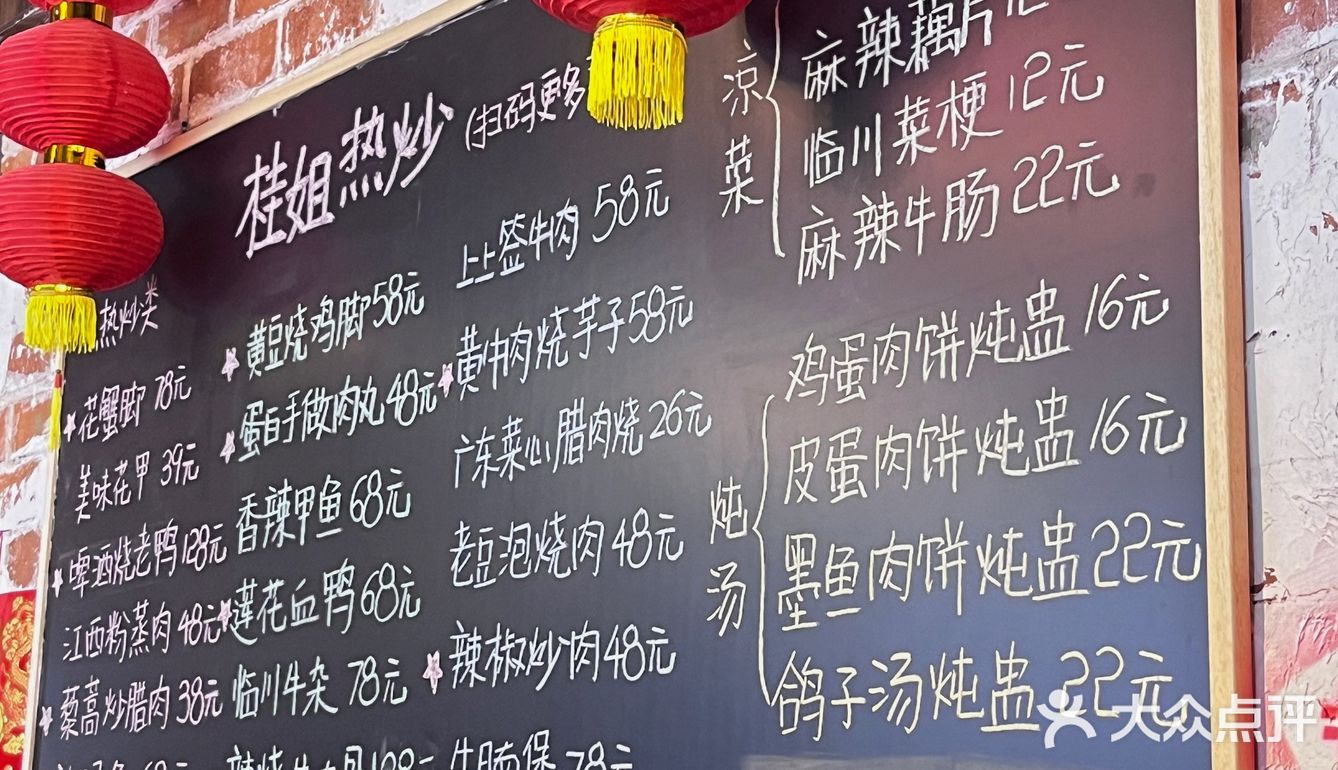 桂姐热炒(扫码更多
热炒类
花蟹脚 78元
美味花甲 39元
啤酒烧老鸭 128元
江西粉蒸肉 48元
藜高炒腊肉 38元
黄豆烧鸡脚 58元
蛋白手做肉丸 48元
香辣甲鱼 68元
莲花血鸭 68元
临川牛杂 78元
上上签牛肉 58元
黄牛肉烧芋子 58元
广东菜心腊肉烧 26元
老豆泡烧肉 48元
辣椒炒肉 48元
78元
凉菜
麻辣藕片
临川菜梗 12元
麻辣牛肠 22元
炖汤
鸡蛋肉饼炖盅 16元
皮蛋肉饼炖盅 16元
墨鱼肉饼炖盅 22元
鸽子汤炖盅 22元
大众点评